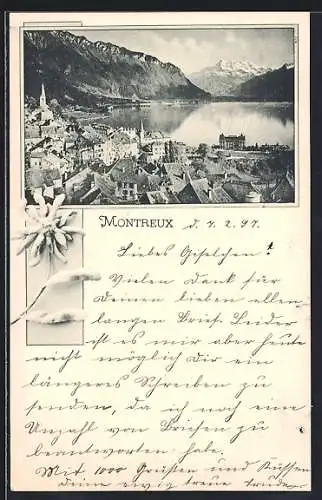 MONTREUX d. 7. 2. 97.
Liebes Giselchen!
Vielen Dank für
Deinen lieben ellen
langen Brief. Leider
ist es mir aber heute
nicht möglich Dir ein
längeres Schreiben zu
senden, da ich noch eine
Unzahl von Briefen zu
beantworten habe.
Mit 1000 Grüssen und Küssen
Deine ewig treue